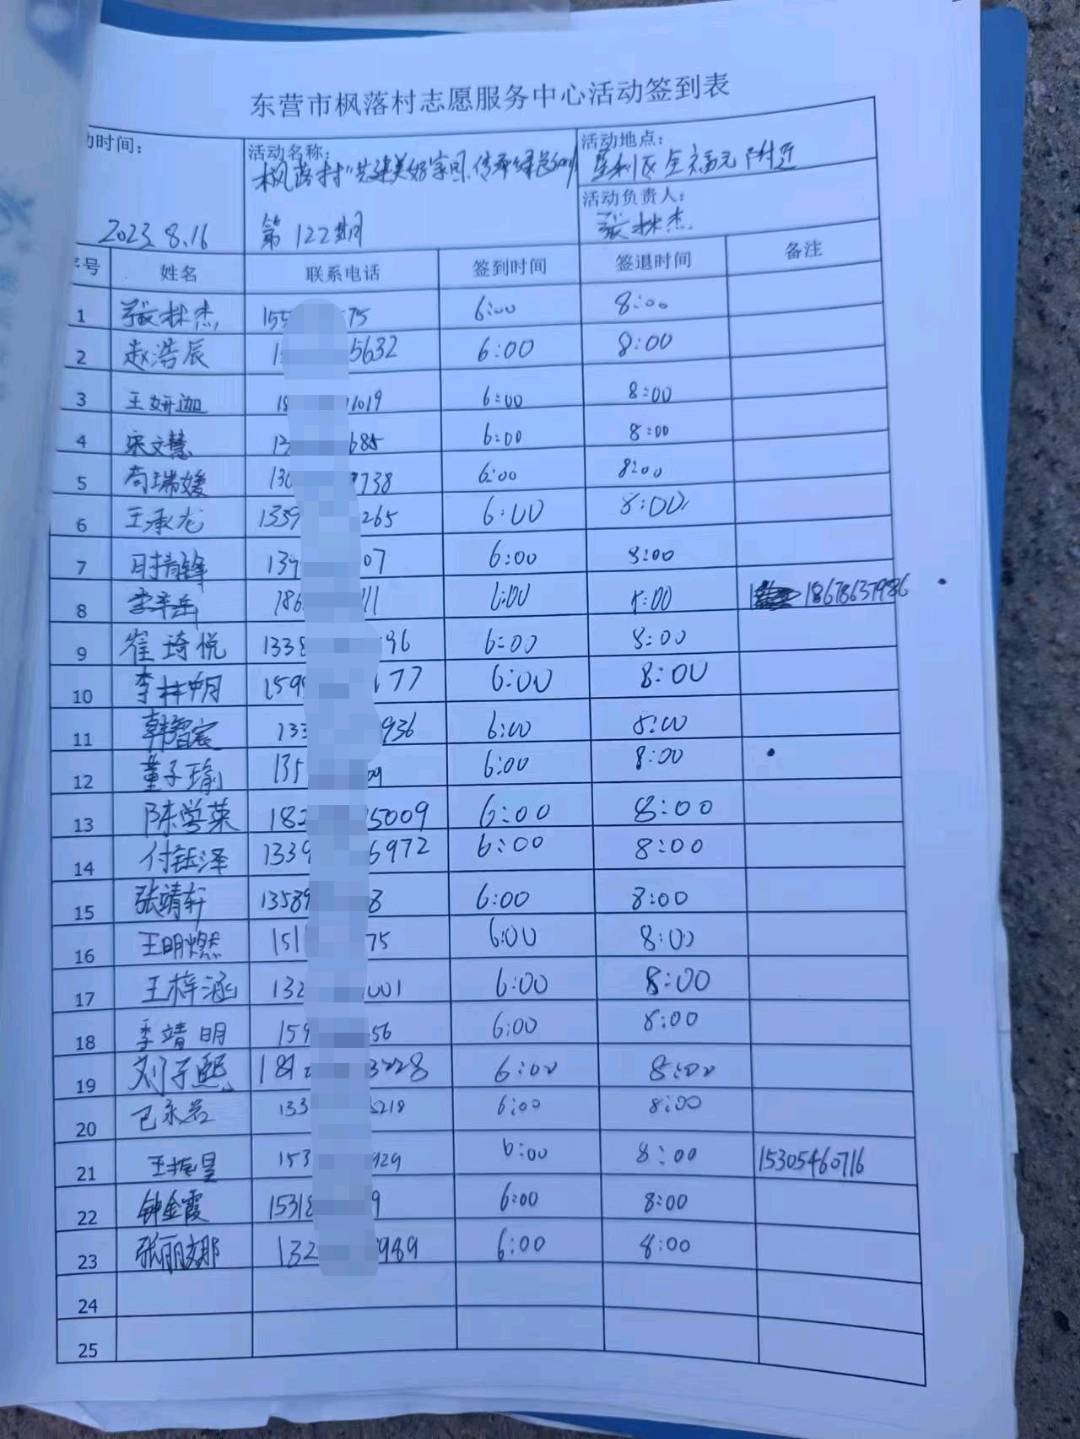 东营市枫落村志愿服务中心活动签到表
动时间: 活动名称: 活动地点:
枫落村"共建美好家园、传承 垦利区 全福元附近
活动负责人:
2023.8.16 第122期 张林杰
序号 姓名 联系电话 签到时间 签退时间 备注
1 张林杰 155 75 6:00 8:00
2 赵浩辰 1 5632 6:00 8:00
3 王妍迦 18 1019 6:00 8:00
4 宋文慧 685 6:00 8:00
5 苟瑞媛 130 738 6:00 8:00
6 王承龙 1339 265 6:00 8:00
7 时靖锋 139 07 6:00 8:00
8 186 11 6:00 8:00 18678637986
9 崔琦悦 1338 96 6:00 8:00
10 李林 159 177 6:00 8:00
11 韩智宸 133 936 6:00 8:00
12 董子瑜 135 09 6:00 8:00
13 陈学荣 182 5009 6:00 8:00
14 付钰泽 1339 6972 6:00 8:00
15 张靖轩 13589 8 6:00 8:00
16 王明燃 151 75 6:00 8:00
17 王梓涵 132 001 6:00 8:00
18 李靖明 159 56 6:00 8:00
19 刘子熙 181 3228 6:00 8:00
20 133 218 6:00 8:00
21 王振昊 153 929 6:00 8:00 15305460716
22 钟金霞 15318 9 6:00 8:00
23 张丽娜 132 989 6:00 8:00
24
25